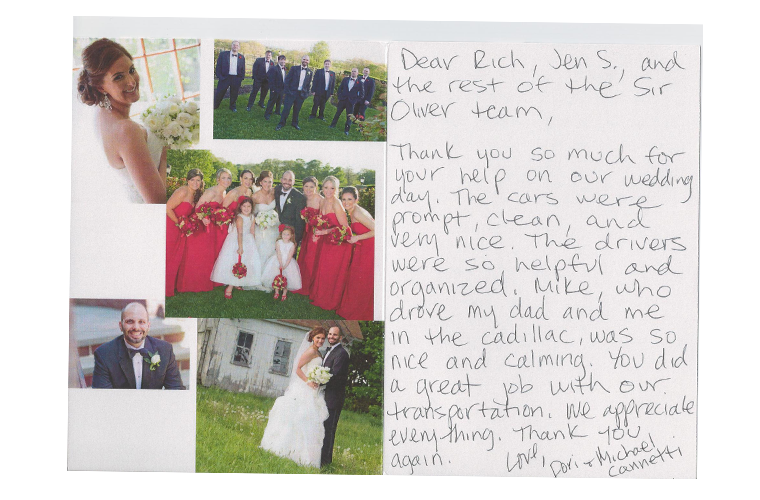 Dear Rich, Jen S., and
the rest of the Sir
Oliver team,
Thank you so much for
your help on our wedding
day. The cars were
prompt, clean, and
very nice. The drivers
were so helpful and
organized. Mike, who
drove my dad and me
in the cadillac, was so
nice and calming. You did
a great job with our
transportation. We appreciate
everything. Thank you
again.
Love,
Dori + Michael
Cannetti